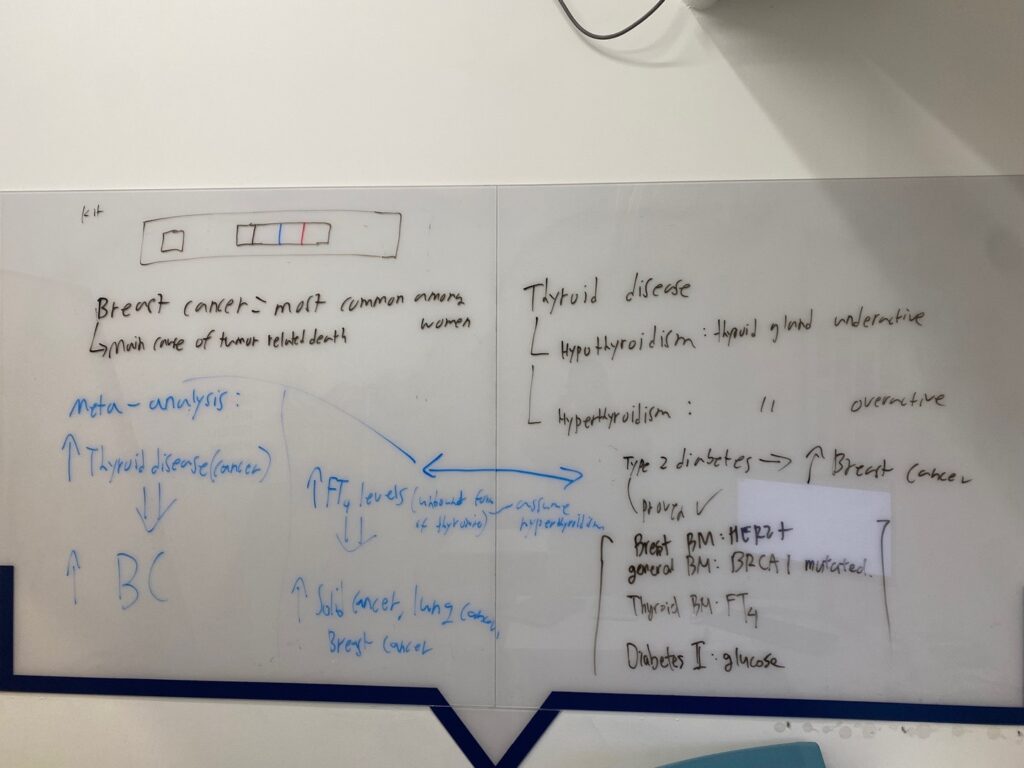 kit
Breast cancer = most common among
women
↳ Main cause of tumor related death
Meta-analysis:
↑ Thyroid disease (cancer)
↑ BC
↑ FT4 levels (unbound form
of thyroxine) – assume
hyperthyroidism
↑ Solid cancer, lung cancer,
Breast cancer
Thyroid disease
Hypothyroidism: thyroid gland underactive
Hyperthyroidism: " overactive
Type 2 diabetes → ↑ Breast cancer
proven ✓
Breast BM: HER2+
general BM: BRCA1 mutated.
Thyroid BM: FT4
Diabetes II: glucose